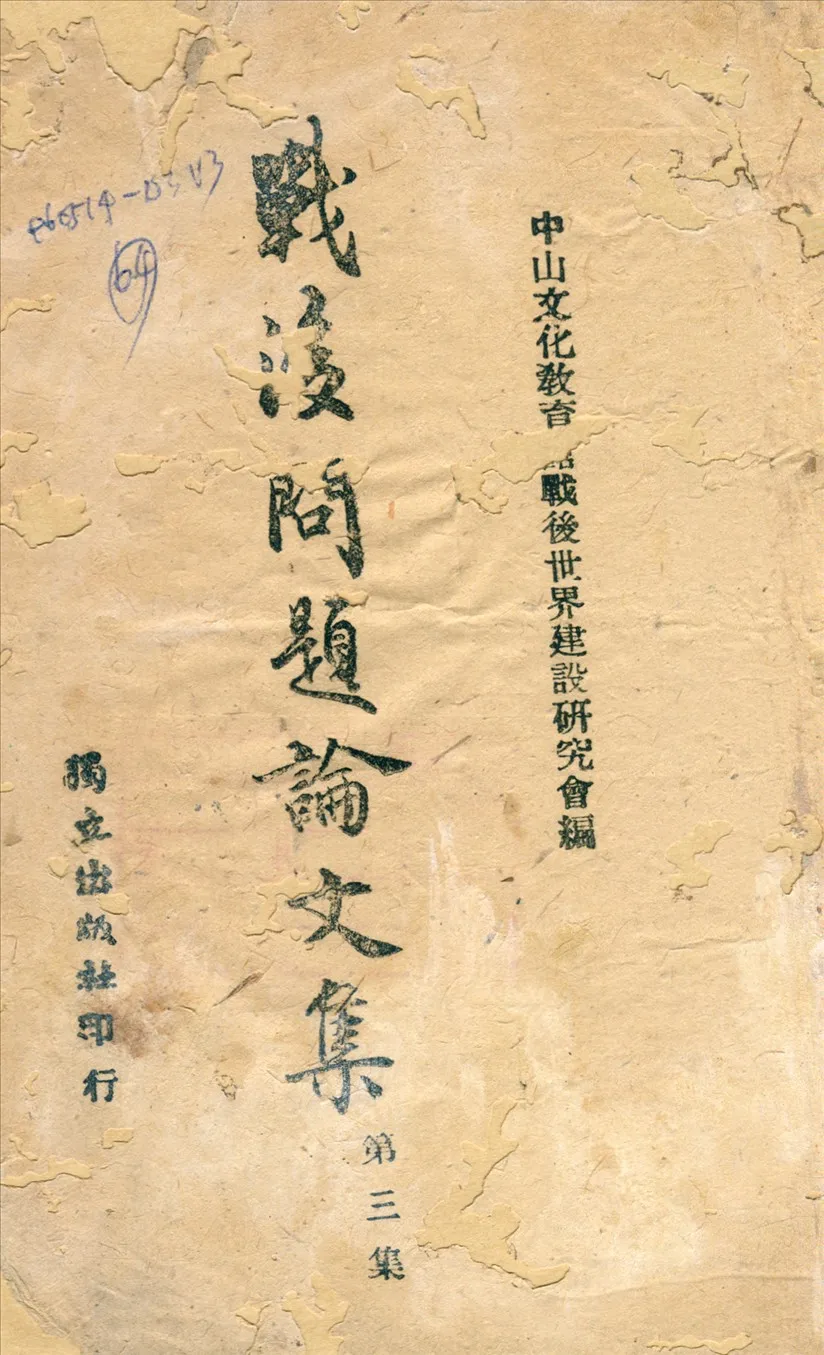 中山文化教育館戰後世界建設研究會編
戰後問題論文集
第三集
獨立出版社印行
64